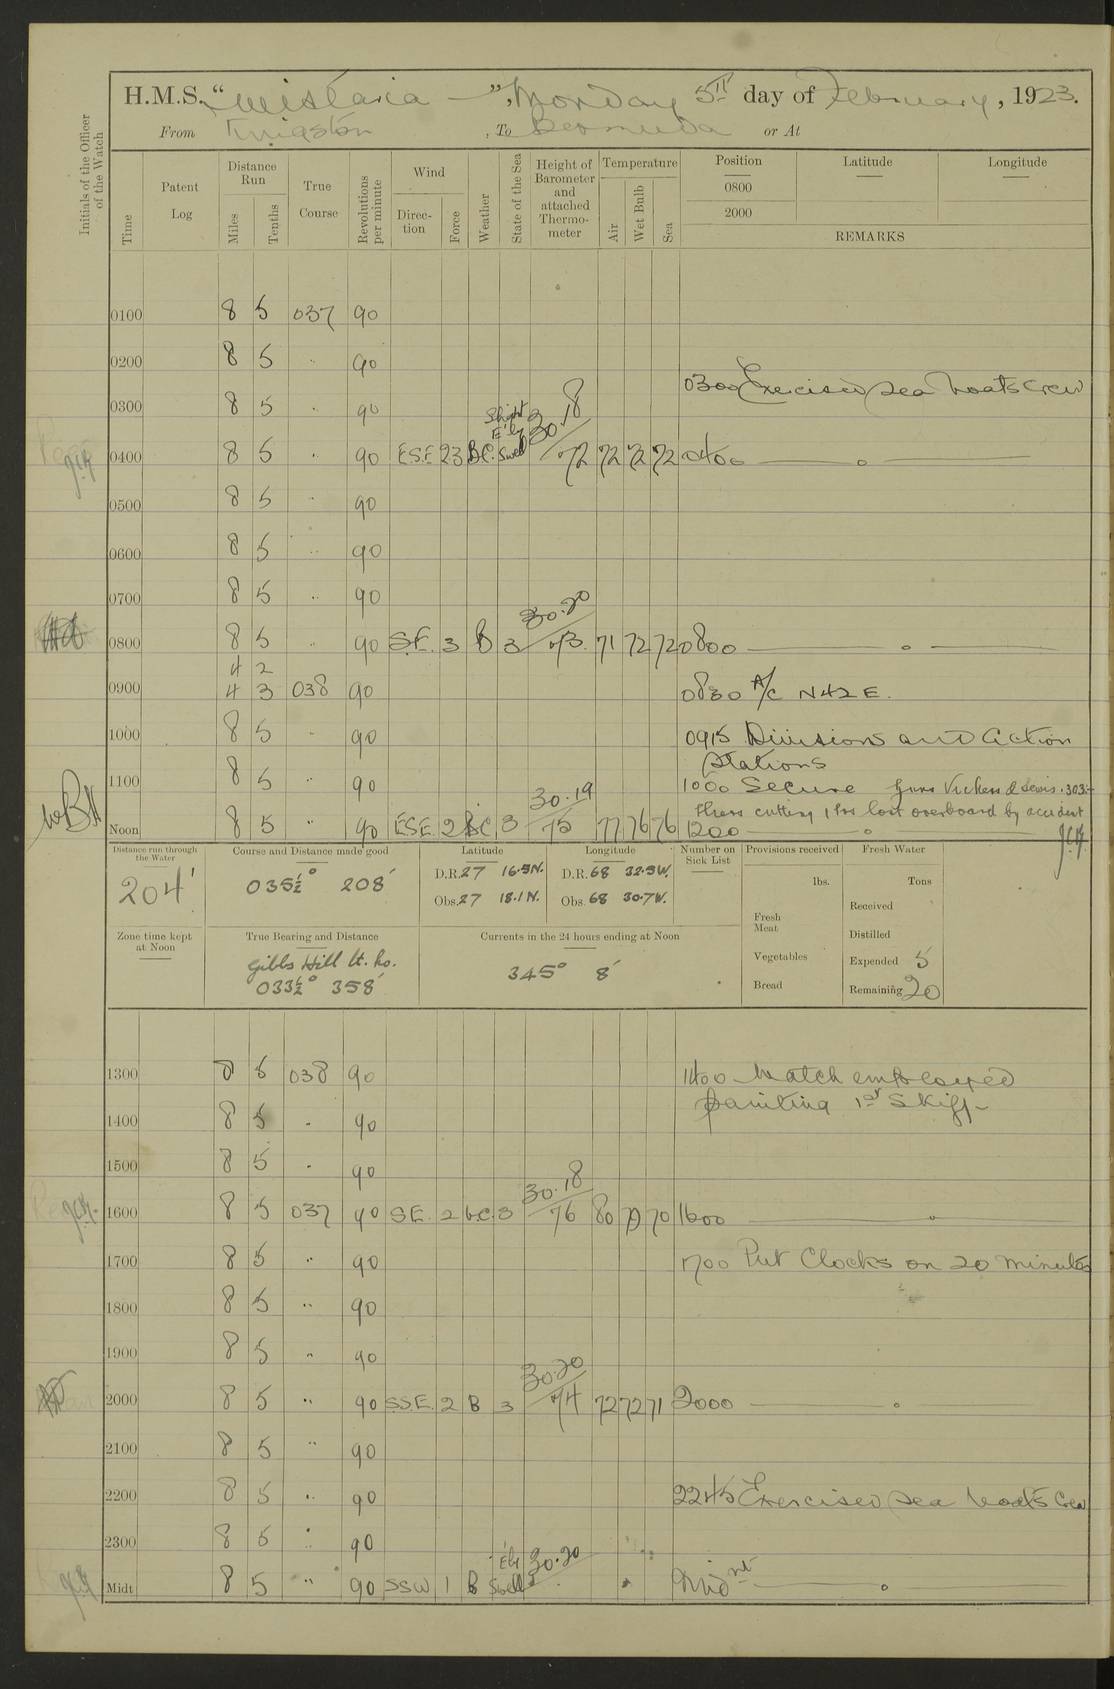 H.M.S. "Wistaria", Monday 5th day of February, 1923.
From Kingston, To Bermuda or At
Initials of the Officer of the Watch
Time
Patent Log
Distance Run
Miles
Tenths
True Course
Revolutions per minute
Wind
Direction
Force
Weather
State of the Sea
Height of Barometer and attached Thermometer
Temperature
Air
Wet Bulb
Sea
Position Latitude Longitude
0800
2000
REMARKS
0100 8 5 037 90
0200 8 5 " 90
0300 Exercised sea boats crew
0300 8 5 " 90
0400 8 5 " 90 ESE 23 BC. Slight E'ly Swell 30.18 72 72 72 72 0400
0500 8 5 " 90
0600 8 5 " 90
0700 8 5 " 90
0800 8 5 " 90 S.E. 3 B 3 30.20 73 71 72 72 0800
4 2
0900 4 3 038 90 0830 A/c N42E.
1000 8 5 " 90 0915 Divisions and Action
Stations
1100 8 5 " 90 1000 Secure Guns Vickers & Lewis .303.
cutting 1 No lost overboard by accident
Noon 8 5 " 90 ESE 2 BC 3 30.19 75 77 76 76 1200
Distance run through the Water
204'
Course and Distance made good
035½° 208'
Latitude
D.R. 27 16.5N.
Obs. 27 18.1N.
Longitude
D.R. 68 32.9W.
Obs. 68 30.7W.
Number on Sick List
Provisions received
lbs.
Fresh Meat
Vegetables
Bread
Fresh Water
Tons
Received
Distilled
Expended 5
Remaining 20
Zone time kept at Noon
True Bearing and Distance
Gibbs Hill Lt. ho.
033½° 358'
Currents in the 24 hours ending at Noon
345° 8'
1300 8 5 038 90 1400 Watch employed
painting 1st Skiff-
1400 8 5 " 90
1500 8 5 " 90
1600 8 5 037 90 SE. 2 b.c. 3 30.18 76 80 79 70 1600
1700 8 5 " 90 1700 Put Clocks on 20 minutes
1800 8 5 " 90
1900 8 5 " 90
2000 8 5 " 90 SSE. 2 B 3 30.20 74 72 72 71 2000
2100 8 5 " 90
2200 8 5 " 90 2245 Exercised sea boats crew
2300 8 5 " 90
Midt 8 5 " 90 SSW 1 B E'ly Swell 30.20 Midnt